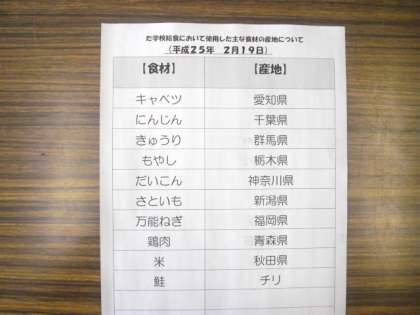 学校給食において使用した主な食材の産地について
（平成25年 2月19日）
【食材】 【産地】
キャベツ 愛知県
にんじん 千葉県
きゅうり 群馬県
もやし 栃木県
だいこん 神奈川県
さといも 新潟県
万能ねぎ 福岡県
鶏肉 青森県
米 秋田県
鮭 チリ